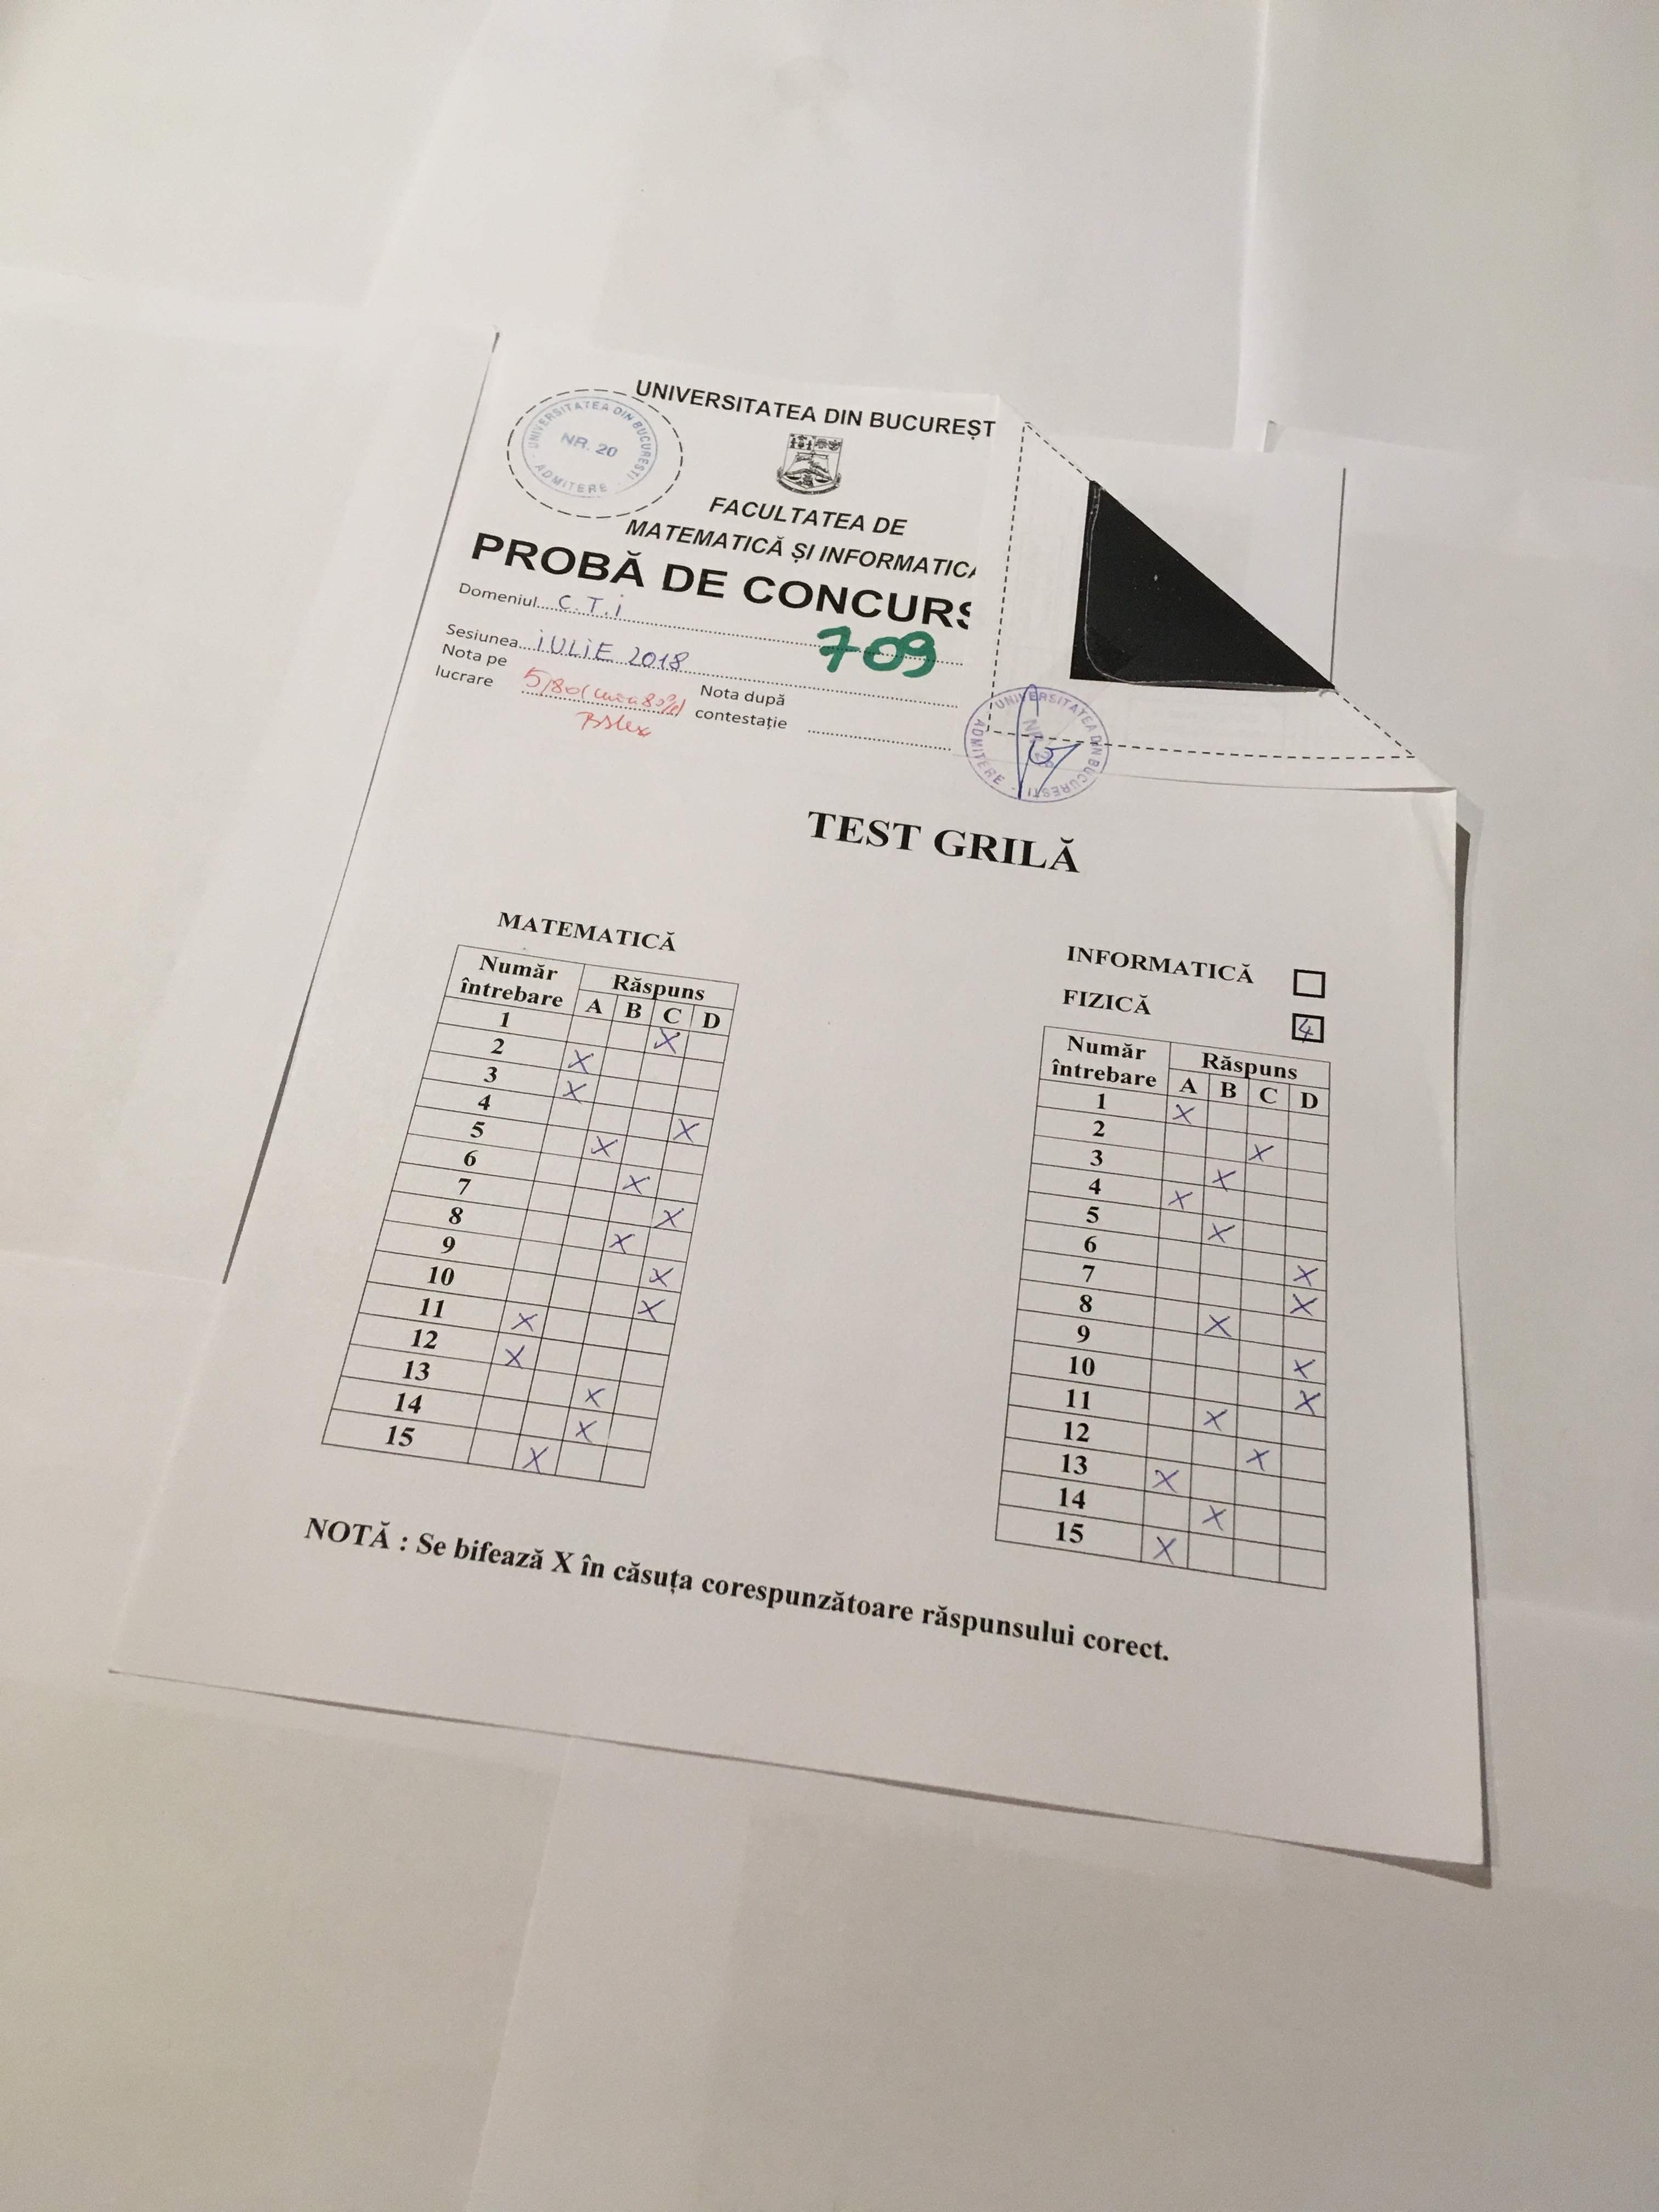 UNIVERSITATEA DIN BUCUREȘT
UNIVERSITATEA DIN BUCURESTI
NR. 20
ADMITERE
FACULTATEA DE
MATEMATICĂ ȘI INFORMATICA
PROBĂ DE CONCURS
Domeniul C.T.i
709
Sesiunea iULiE 2018
Nota pe lucrare 5,80 (cinci 80%)
Nota după contestație
UNIVERSITATEA DIN BUCURESTI
ADMITERE
TEST GRILĂ
MATEMATICĂ
Număr întrebare Răspuns
A B C D
1 X
2 X
3 X
4 X
5 X
6 X
7 X
8 X
9 X
10 X
11 X
12 X
13 X
14 X
15 X
INFORMATICĂ
FIZICĂ 4
Număr întrebare Răspuns
A B C D
1 X
2 X
3 X
4 X
5 X
6 X
7 X
8 X
9 X
10 X
11 X
12 X
13 X
14 X
15 X
NOTĂ : Se bifează X în căsuța corespunzătoare răspunsului corect.